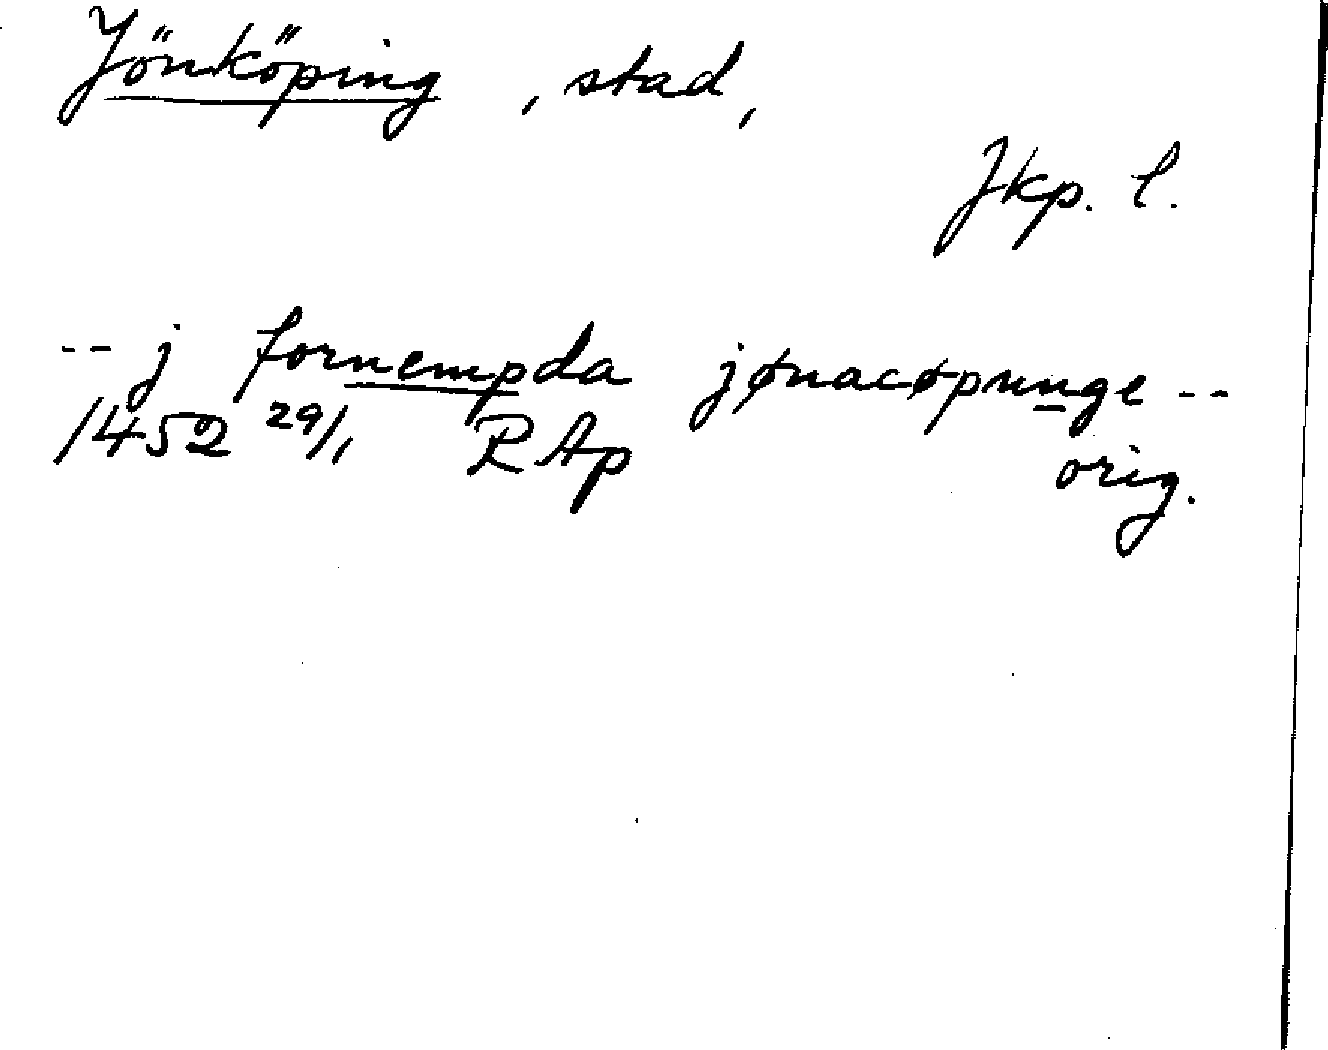 Jönköping, stad,
Jkp. l.
-- j fornempda jønacøpunge --
1452 29/1 RAp orig.